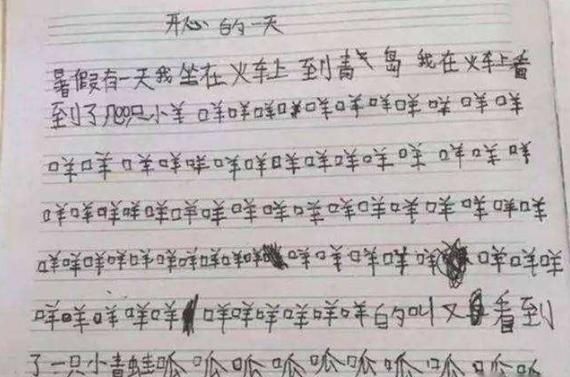 开心的一天
暑假有一天我坐在火车上到青岛我在火车上看
到了几只小羊咩咩咩咩咩咩咩咩咩咩咩
咩咩咩咩咩咩咩咩咩咩咩咩咩咩咩
咩咩咩咩咩咩咩咩咩咩咩咩咩咩咩咩咩
咩咩咩咩咩咩咩咩咩咩咩咩咩咩咩咩咩咩
咩咩咩咩咩咩咩咩咩咩咩的叫又看到
了一只小青蛙呱呱呱呱呱呱呱呱呱呱